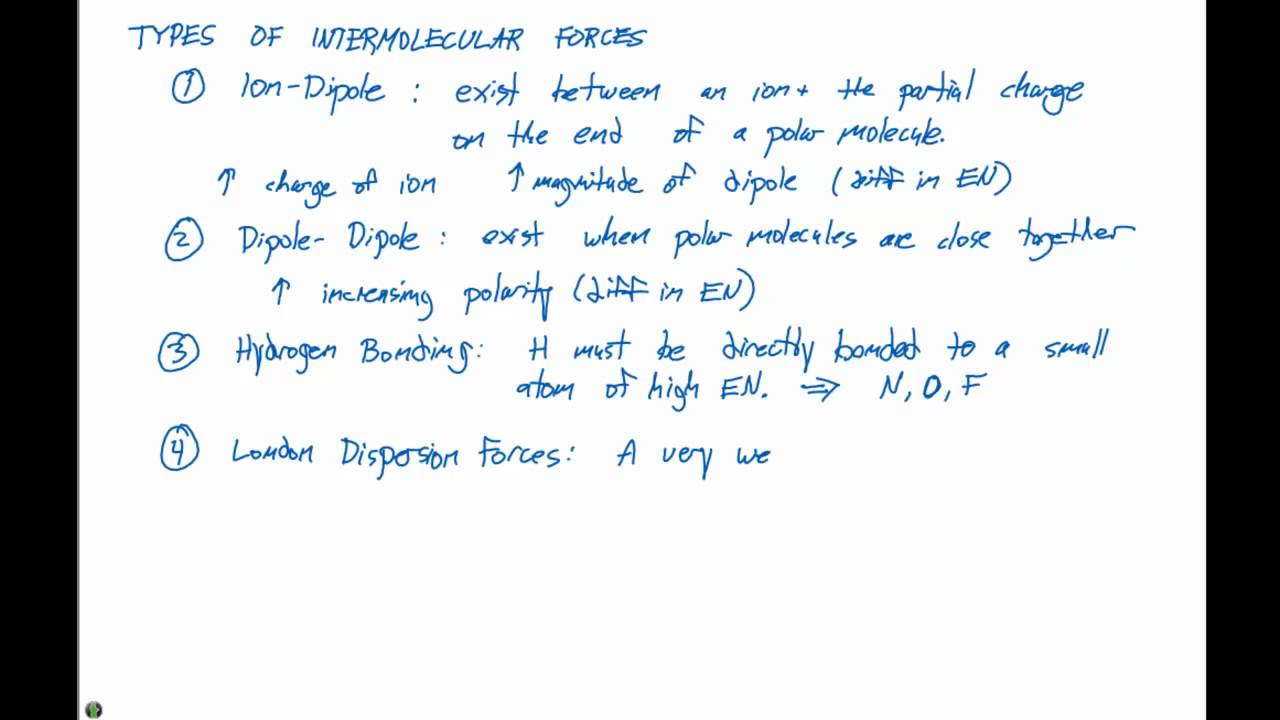 TYPES OF INTERMOLECULAR FORCES
① Ion-Dipole : exist between an ion + the partial charge
on the end of a polar molecule.
↑ charge of ion ↑ magnitude of dipole (diff in EN)
② Dipole-Dipole : exist when polar molecules are close together
↑ increasing polarity (diff in EN)
③ Hydrogen Bonding: H must be directly bonded to a small
atom of high EN. ⇒ N, O, F
④ London Dispersion Forces: A very we